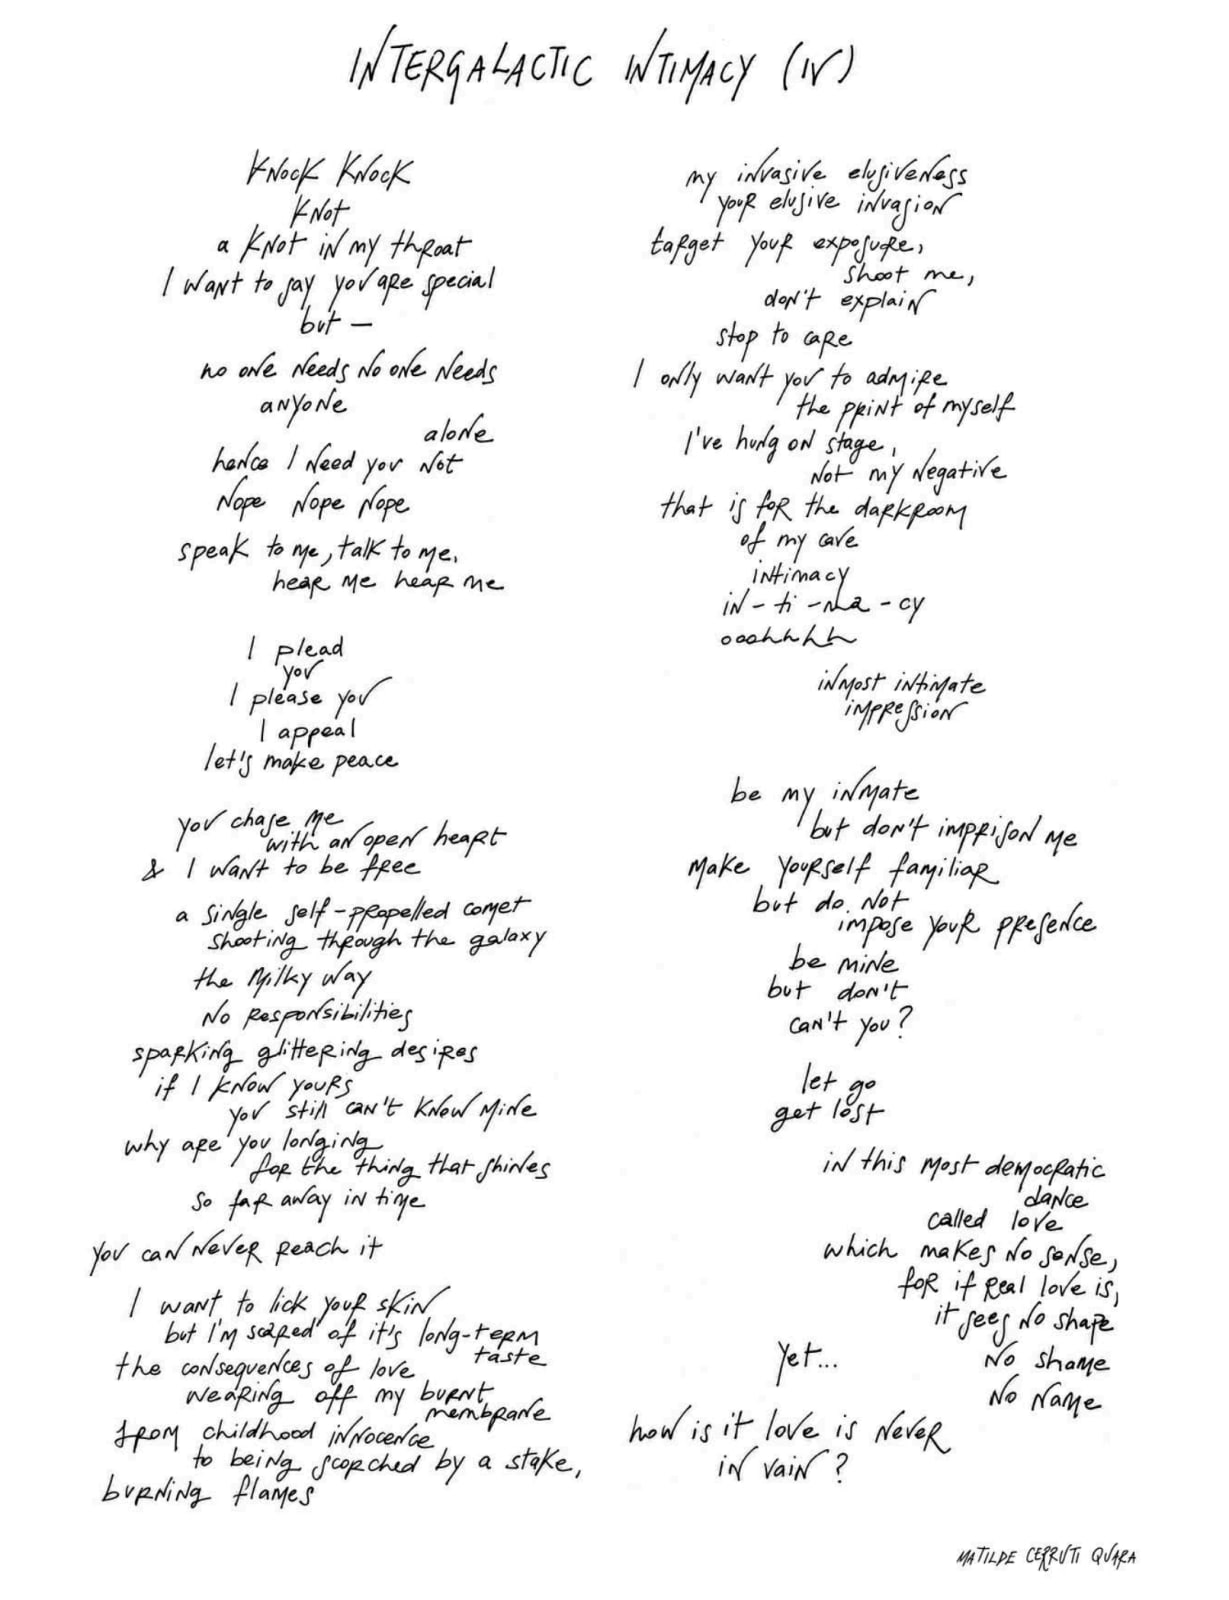 INTERGALACTIC INTIMACY (IV)
KNOCK KNOCK
KNOT
a KNOT IN my throat
I want to say you are special
but —
no one needs no one needs
anyone
alone
hence I need you not
Nope Nope Nope
speak to me, talk to me,
hear me hear me
I plead
you
I please you
I appeal
let's make peace
you chase me
with an open heart
& I want to be free
a single self-propelled comet
shooting through the galaxy
the Milky Way
No responsibilities
sparking glittering desires
if I know yours
you still can't know mine
why are you longing
for the thing that shines
so far away in time
you can never reach it
I want to lick your skin
but I'm scared of it's long-term
taste
the consequences of love
wearing off my burnt
membrane
from childhood innocence
to being scorched by a stake,
burning flames
my invasive elusiveness
your elusive invasion
target your exposure,
shoot me,
don't explain
stop to care
I only want you to admire
the print of myself
I've hung on stage,
not my negative
that is for the darkroom
of my cave
intimacy
in - ti - ma - cy
ooohhhh
inmost intimate
impression
be my inmate
but don't imprison me
make yourself familiar
but do not
impose your presence
be mine
but don't
can't you?
let go
get lost
in this most democratic
dance
called love
which makes no sense,
for if real love is,
it sees no shape
yet... No shame
No Name
how is it love is never
in vain?
MATILDE CERRUTI QUARA